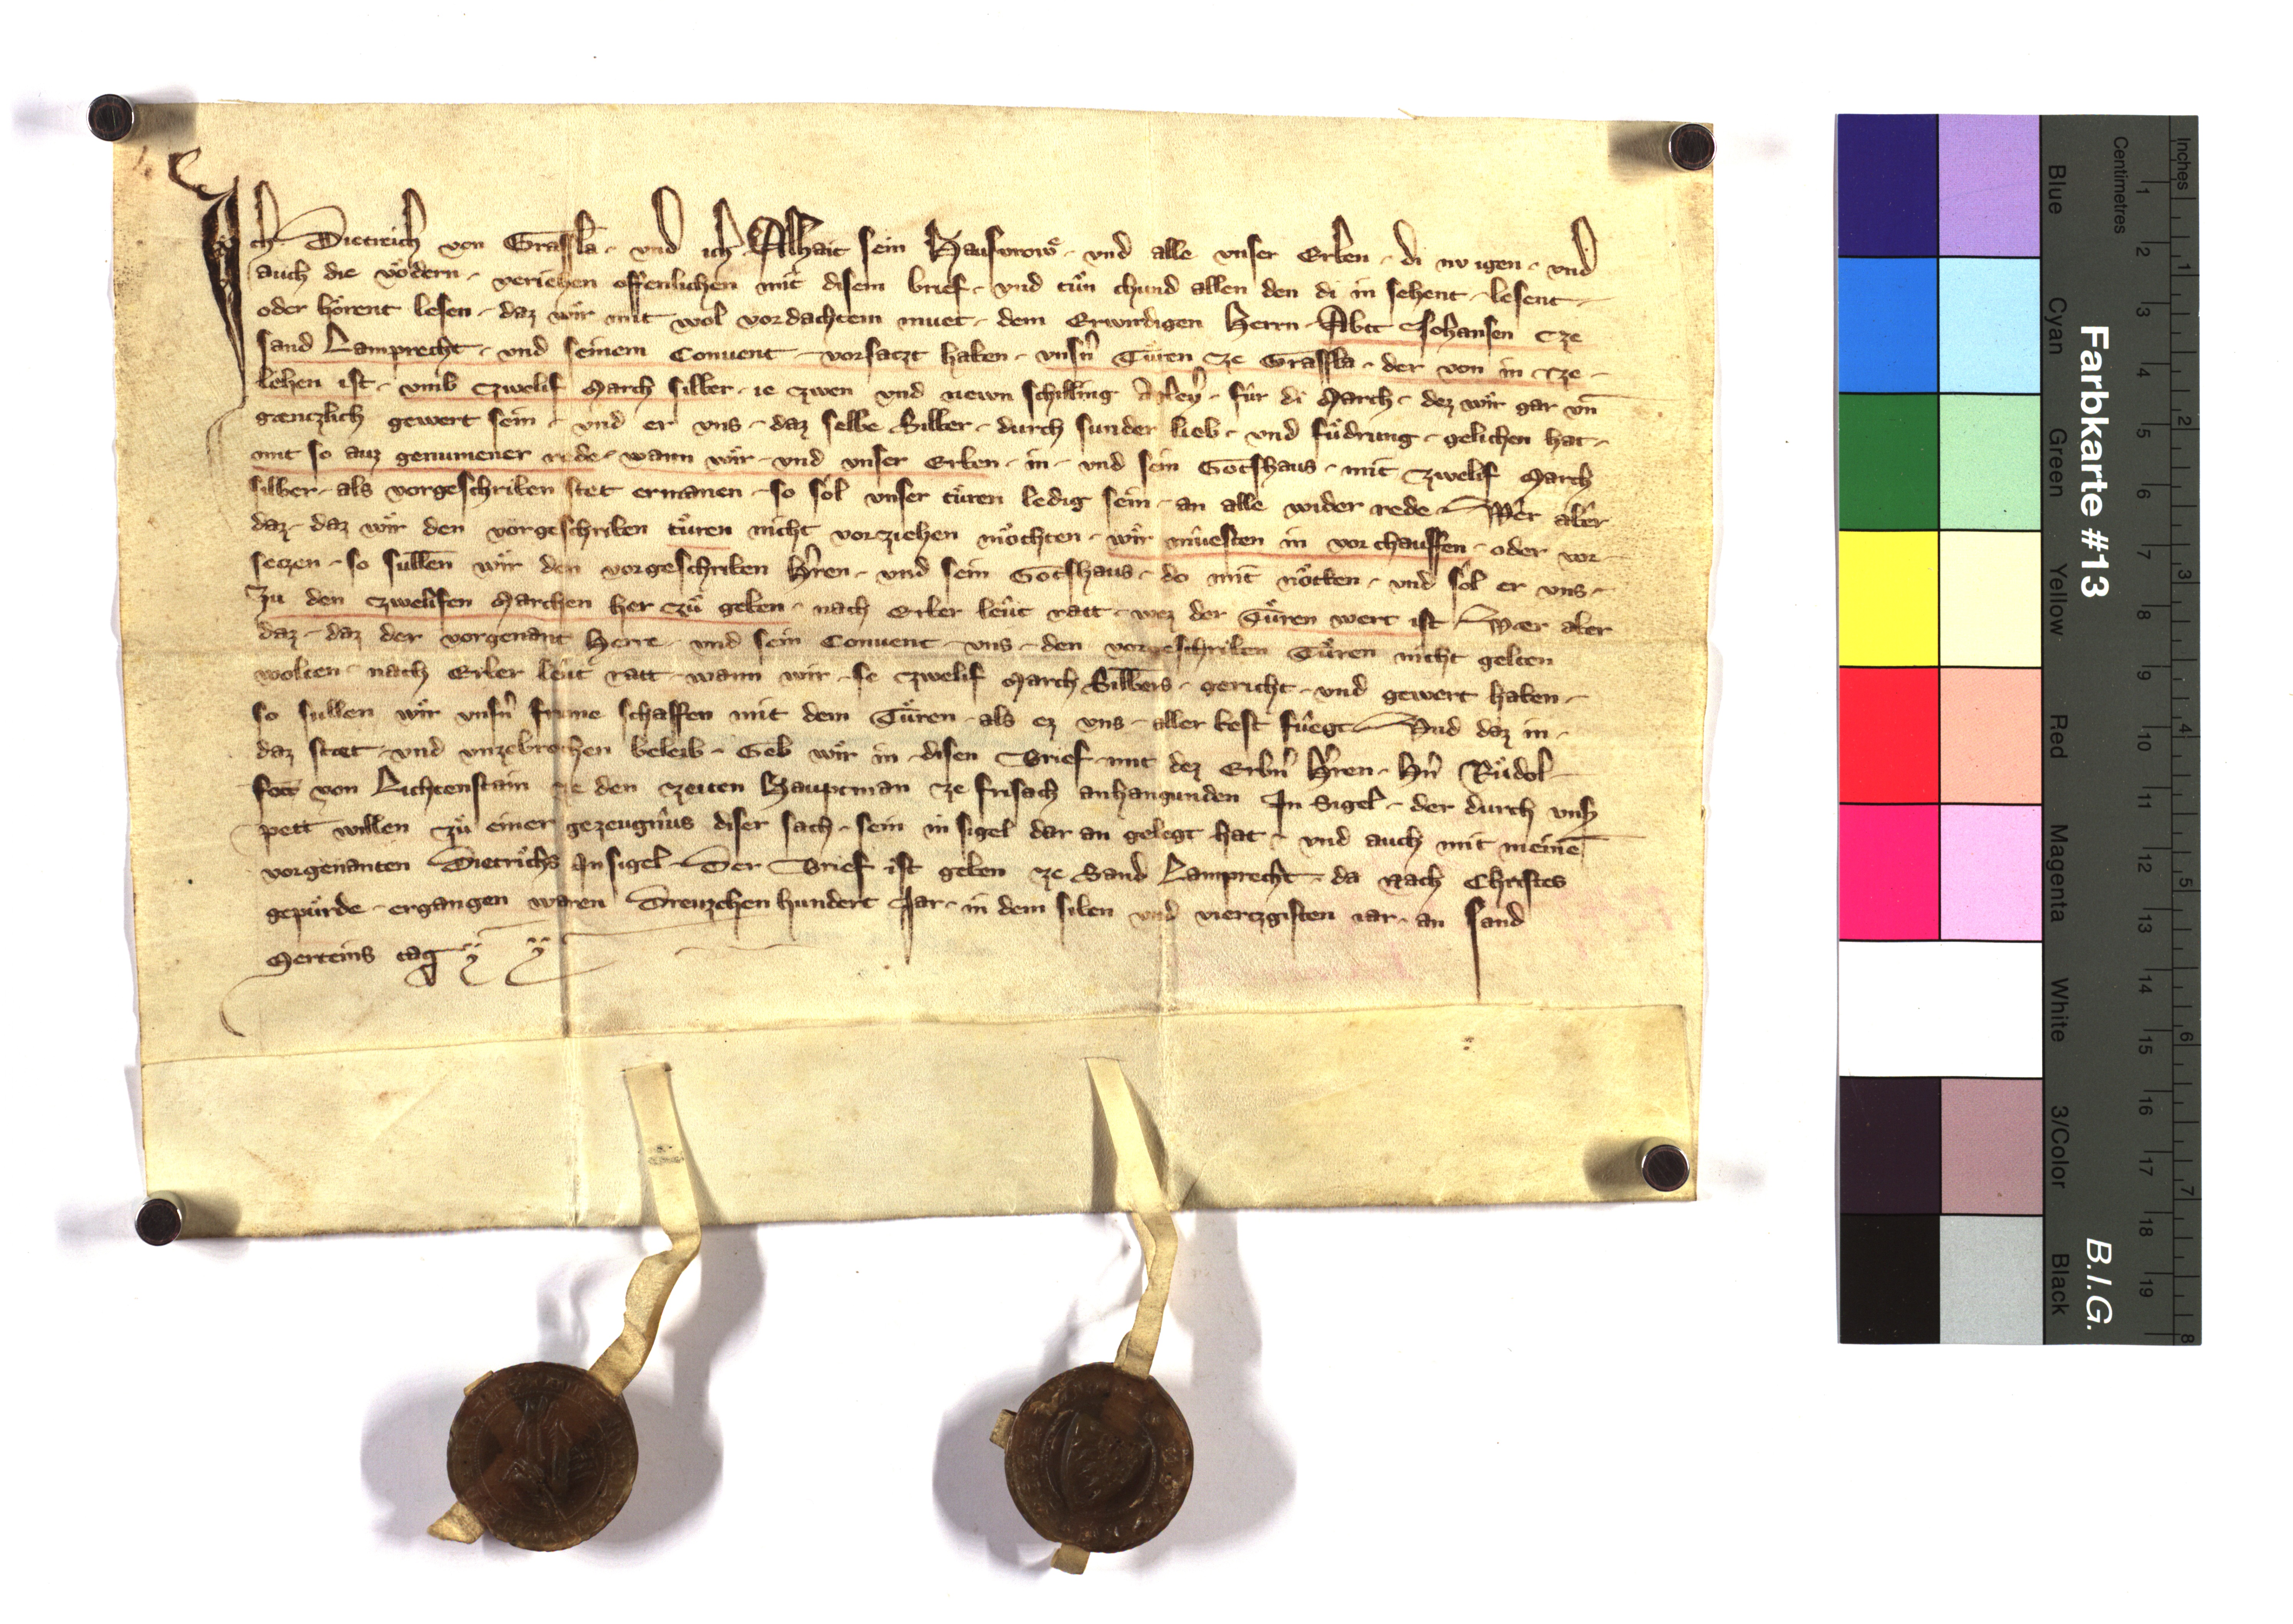 Ich Dietreich von Grassla · vnd ich Alhait sein Hausvrowͤ · vnd alle vnser Erben · di nv igen · vnd
auch die voͤdern · veriehen offenlichen mit disem brief · vnd tuͤn chund allen den di in sehent · lesent ·
oder hoͤrent lesen · daz wir mit wol vordachtem muet · dem Erwirdigen Herrn · Abtt Johansen cze
sand Lamprecht · vnd seinem Conuent · vorsaczt haben · vnsn̄ Tuͤren cze Grassla · der von in cze ·
lehen ist · vmb czwelif March silber · ie zwen vnd newn schilling · fuͤr di March · dez wir gar vn̄
gænczlich gewert sein · vnd er vns · daz selbe Silber · durch sunder lieb · vnd fuͤdrung · gelichen hat ·
mit so auz genumener rede · wann wir · vnd vnser Erben · in · vnd sein Gotshaus · mit czwelif March
silber · als vorgeschriben stet ermanen · so sol vnser tuͤren ledig sein · an alle wider rede · Wer aber
daz · daz wir den vorgeschriben tuͤren nicht vorziehen moͤchten · wir muesten in vor chauffen · oder vor ·
seczen · so sullen wir den vorgeschriben Hr̄en · vnd sein Gotshaus · do mit noͤtten · vnd sol er vns ·
zu den czwelifen Marchen her czuͤ geben · nach Erber leut ratt · wez der Tuͤren wert ist · Wær aber
daz · daz der vorgenant Herre · vnd sein Conuent · vns · den vorgeschriben Tuͤren nicht gelten
wolten · nach Erber leut ratt · wann wir · se czwelif March Silbers · gericht · vnd gewert haben ·
so sullen wir vnsn̄ frume schaffen mit dem Tuͤren · als ez vns · aller best fuegt · Vnd daz in ·
daz stæt · vnd vnzebrochen beleib · Geb wir in · disen Brief · mit dez Erbn̄ Hr̄en · Hn̄ Ruͤdol ·
von Lichtenstain ze den zeiten Hauptman ze frisach anhangunden In Sigel · der durch vnsz
pett willen zuͤ einer gezeugnus diser sach · sein in sigel dar an gelegt hat · vnd auch mit meinē
vorgenanten Dietrichs Insigel · Der Brief ist geben ze Sand Lamprecht · da nach Christes
gepuͤrde · ergangen waren Dreuzehen hundert Jar · in dem siben vnd vierczgisten iar · an sand
Merteins tag
Inches
Centimetres
1 2 3 4 5 6 7 8
1 2 3 4 5 6 7 8 9 10 11 12 13 14 15 16 17 18 19
Farbkarte #13
B.I.G.
Blue
Cyan
Green
Yellow
Red
Magenta
White
3/Color
Black